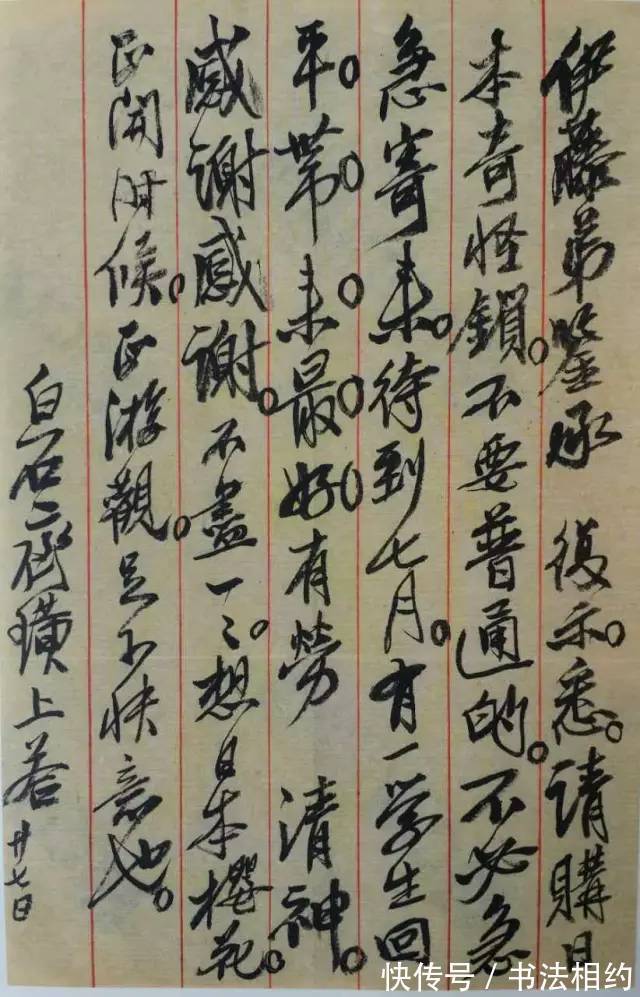 伊藤弟鑒承 復示。悉。請購日
本奇怪鎖。不要普通的。不必急
急寄来。待到七月。有一学生回
平。带。来。最。好。有勞 清神。
感謝感謝。不盡一〻。想日本櫻花
正開时候。正游觀。足下快意也。
白石齊璜上答 廿七日
快传号 / 书法相约